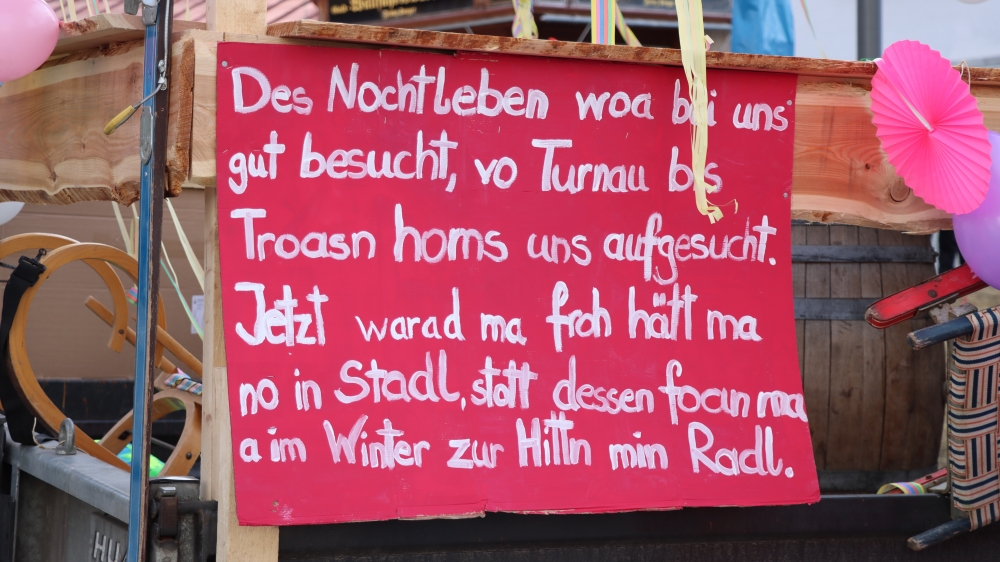 Des Nochtleben woa bei uns
gut besucht, vo Turnau bis
Troasn homs uns aufgesucht.
Jetzt warad ma froh hätt ma
no in Stadl, statt dessen foan ma
a im Winter zur Hittn min Radl.
HU